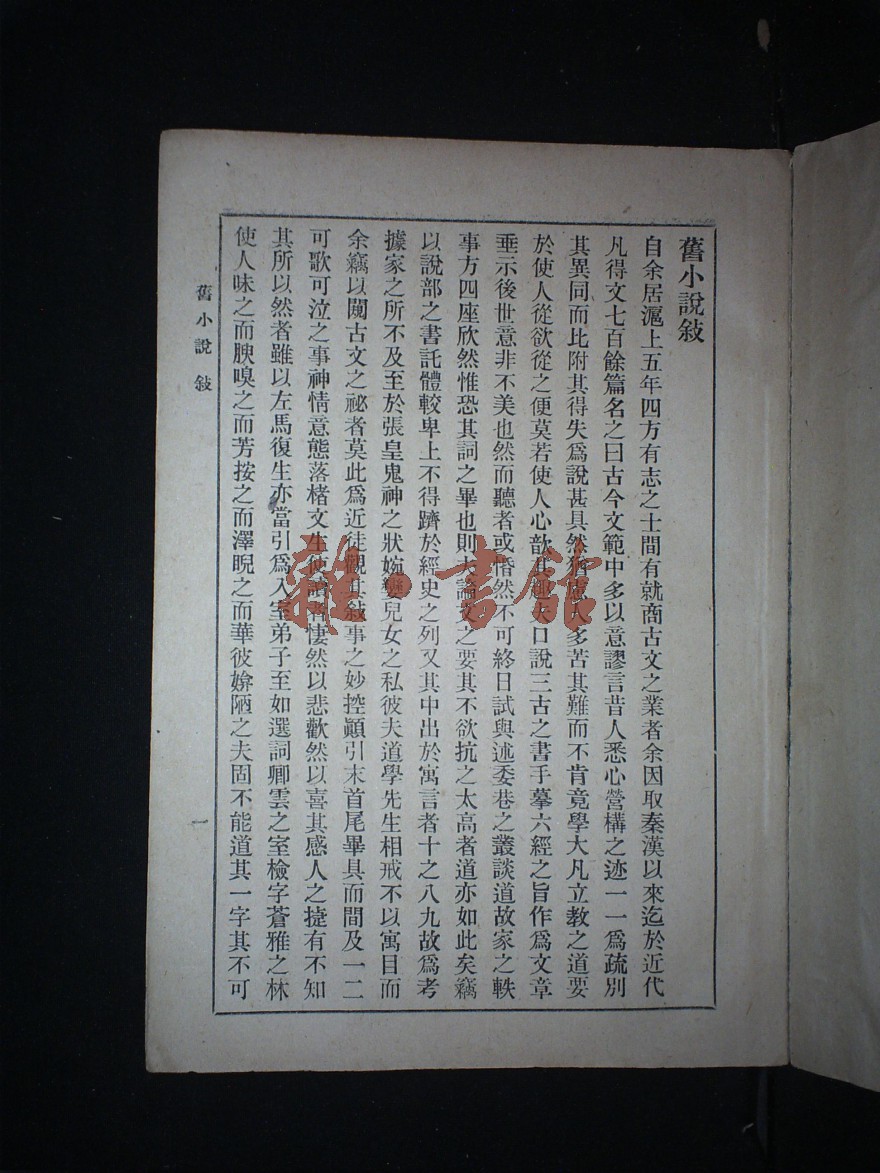 舊小說敍
自余居滬上五年四方有志之士間有就商古文之業者余因取秦漢以來迄於近代
凡得文七百餘篇名之曰古今文範中多以意謬言昔人悉心營構之迹一一爲疏別
其異同而比附其得失爲說甚具然猶慮人多苦其難而不肯竟學大凡立教之道要
於使人從欲從之便莫若使人心歆其趣夫口說三古之書手摹六經之旨作爲文章
垂示後世意非不美也然而聽者或惛然不可終日試與述委巷之叢談道故家之軼
事方四座欣然惟恐其詞之畢也則夫論文之要其不欲抗之太高者道亦如此矣竊
以說部之書託體較卑上不得躋於經史之列又其中出於寓言者十之八九故爲考
據家之所不及至於張皇鬼神之狀婉孌兒女之私彼夫道學先生相戒不以寓目而
余竊以闚古文之祕者莫此爲近徒觀其敍事之妙控顚引末首尾畢具而間及一二
可歌可泣之事神情意態落楮文生使讀者悽然以悲歡然以喜其感人之捷有不知
其所以然者雖以左馬復生亦當引爲入室弟子至如選詞卿雲之室檢字蒼雅之林
使人味之而腴嗅之而芳按之而澤睨之而華彼媕陋之夫固不能道其一字其不可
舊小說 敍
一
雜·書館